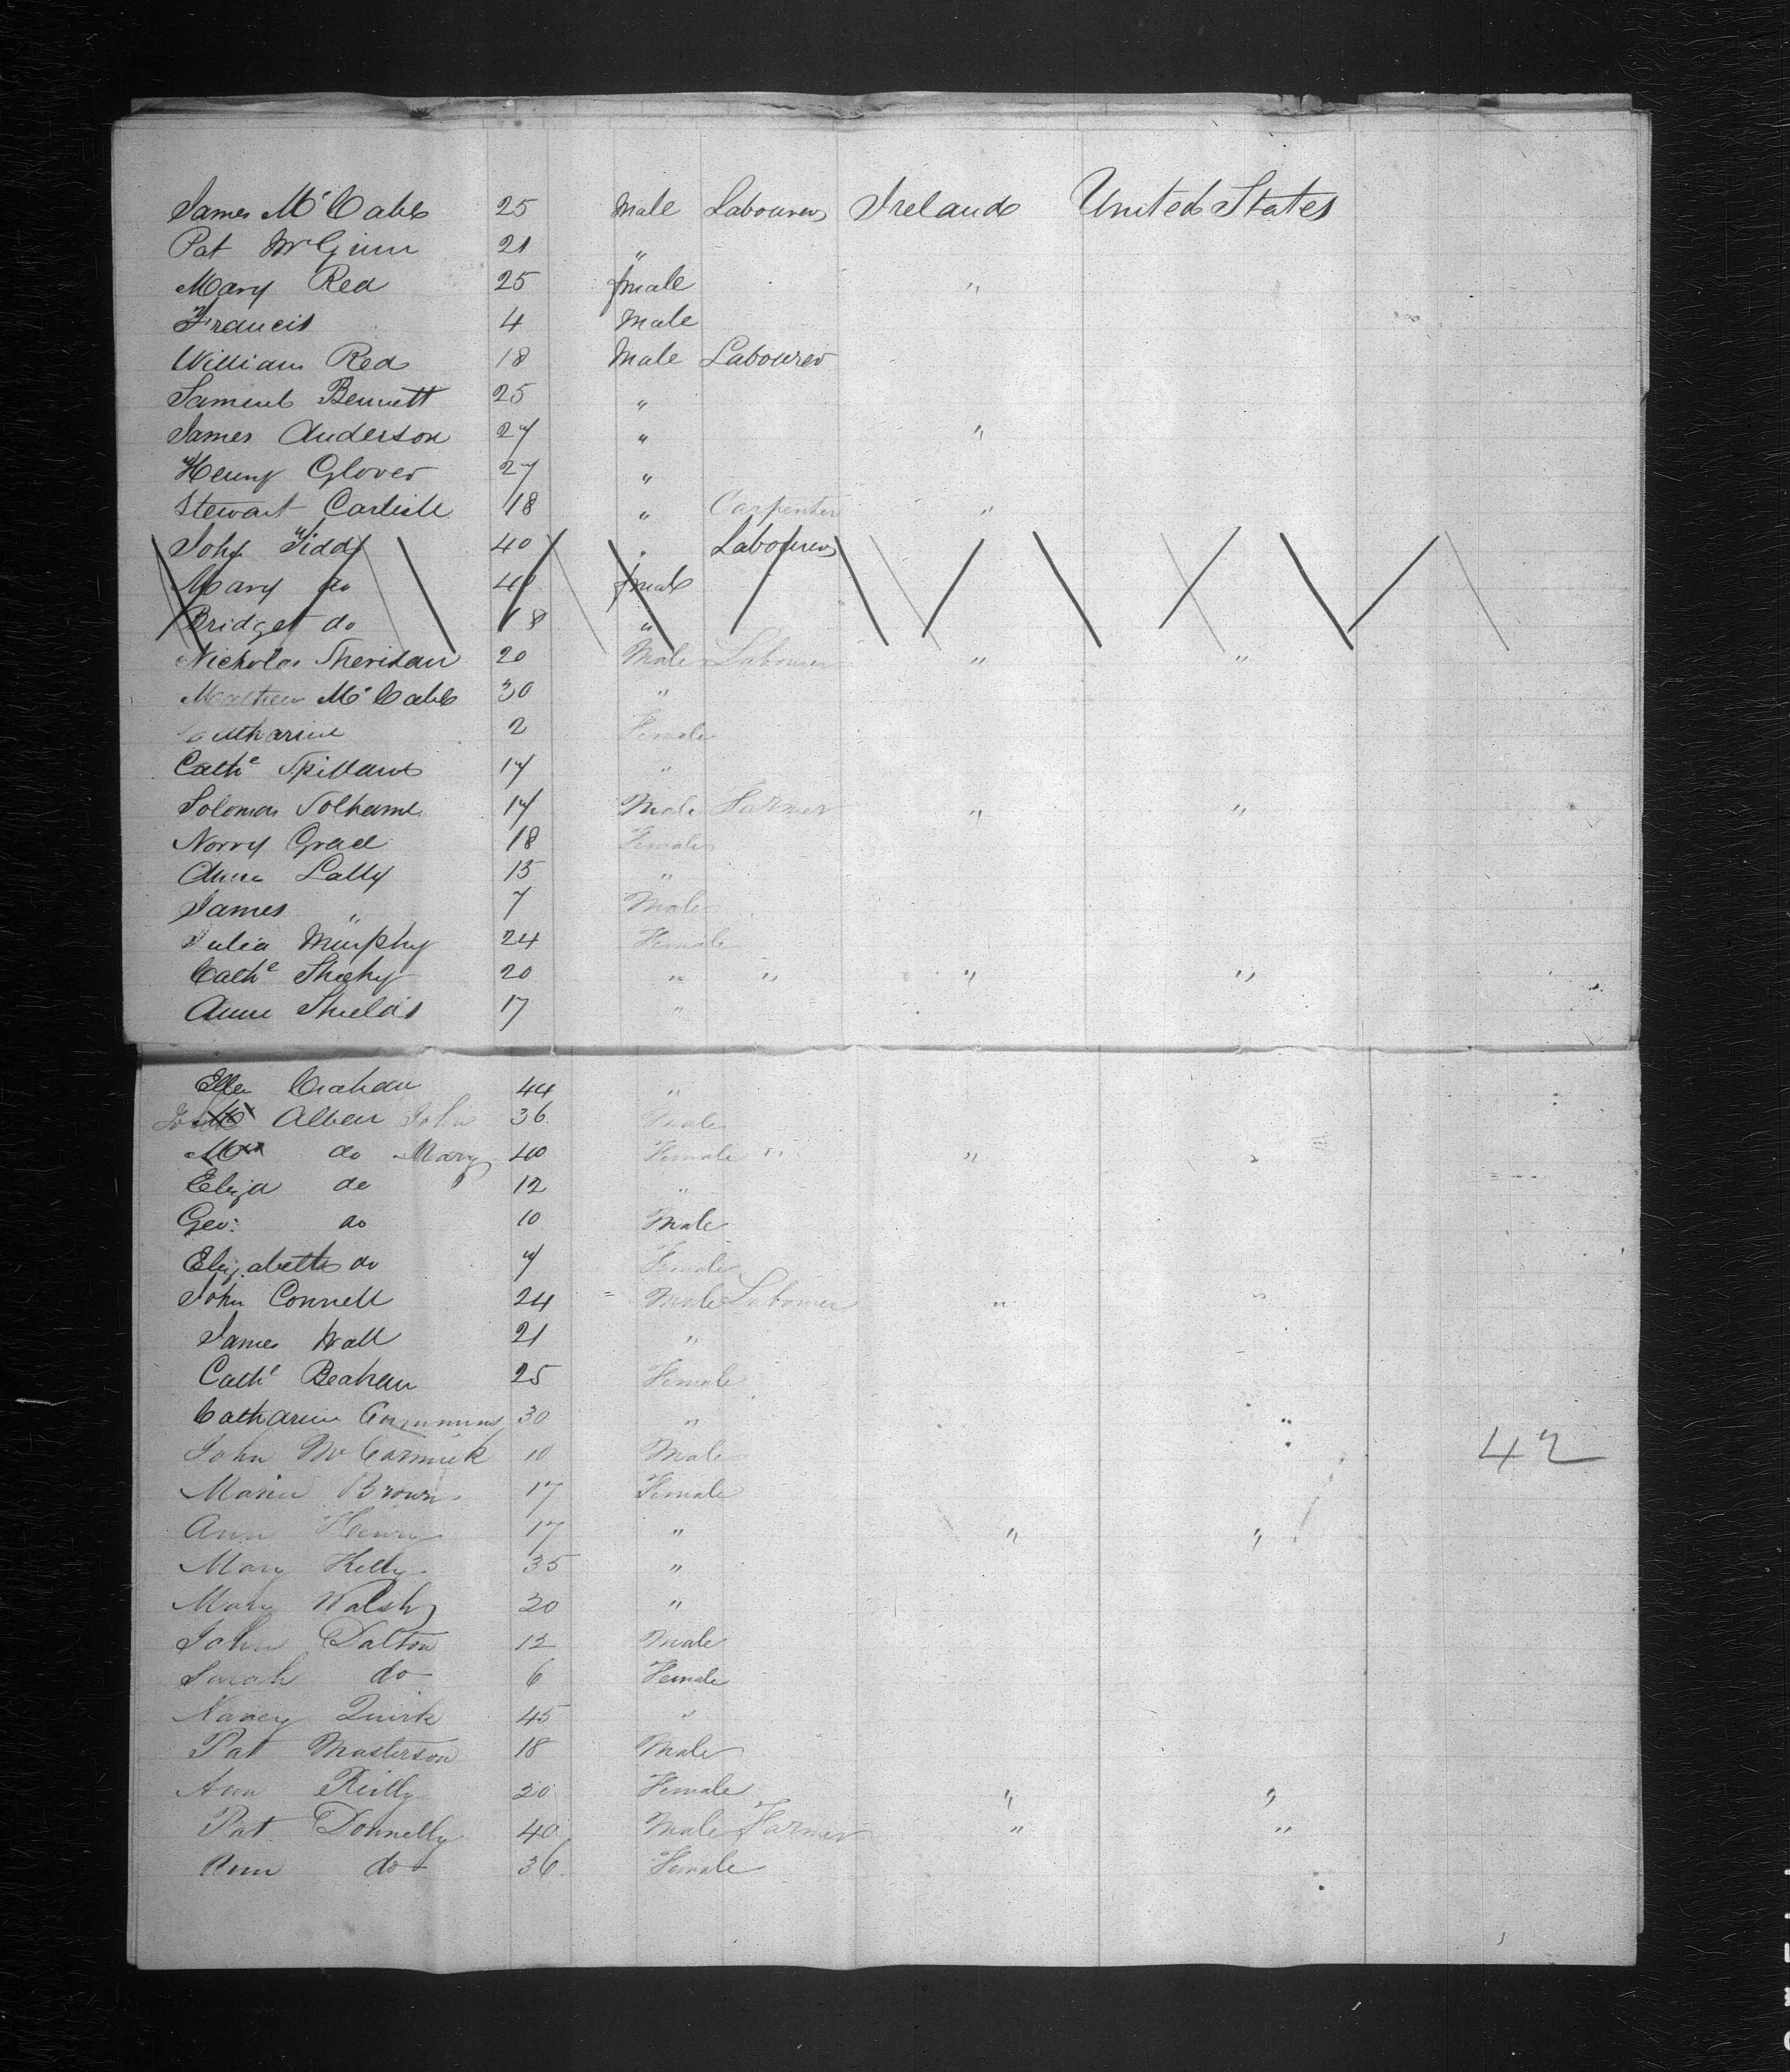 James McCabe 25 Male Labourer Ireland United States
Pat McGinn 21 "
Mary Red 25 female "
Francis 4 Male
William Red 18 Male Labourer
Samuel Bennett 25 "
James Anderson 27 " "
Henry Glover 27 "
Stewart Carlisle 18 " Carpenter "
John Tiddy 40 " Labourer
Mary do 40 female
Bridget do 18 "
Nicholas Sheridan 20 Male Labourer " "
Mathew McCabe 30 "
Catharine 2 Female
Cathe Spillane 17 "
Solomon 17 Male Farmer " "
Norry Grace 18 Female
Anne Lally 15 "
James " 7 Male
Julia Murphy 24 Female
Cathe Sheehy 20 " " " "
Anne Shields 17 "
Ellen Crahan 44 "
Alben John 36 Male
do Mary 40 Female " " "
Eliza do 12 "
Geo: do 10 Male
Elizabeth do 7 Female
John Connell 24 Male Labourer " "
James Wall 21 "
Cathe Beahan 25 Female
Catharine Cummins 30 " "
John McCormick 10 Male 42
Maria Brown 17 Female
Ann Henry 17 " " "
Mary Kelly 35 "
Mary Walsh 30 "
John Dalton 12 Male
Sarah do 6 Female
Nancy Quirk 45 "
Pat Masterson 18 Male
Ann Reilly 20 Female " "
Pat Donnelly 40 Male Farmer " "
Ann do 36 Female